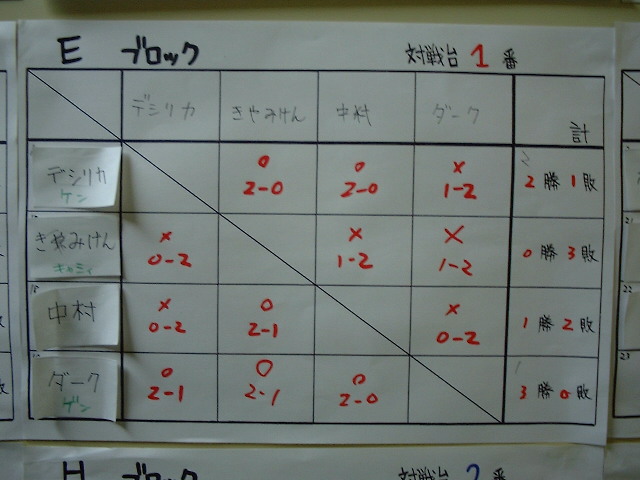 E ブロック 対戦台 1 番
デシリカ きやみけん 中村 ダーク 計
デシリカ ○ ○ × 2 勝 1 敗
ケン 2-0 2-0 1-2
きやみけん × × × 0 勝 3 敗
キャミィ 0-2 1-2 1-2
中村 × ○ × 1 勝 2 敗
0-2 2-1 0-2
ダーク ○ ○ ○ 3 勝 0 敗
ゲン 2-1 2-1 2-0
22
23
H ブロック 対戦台 2 番